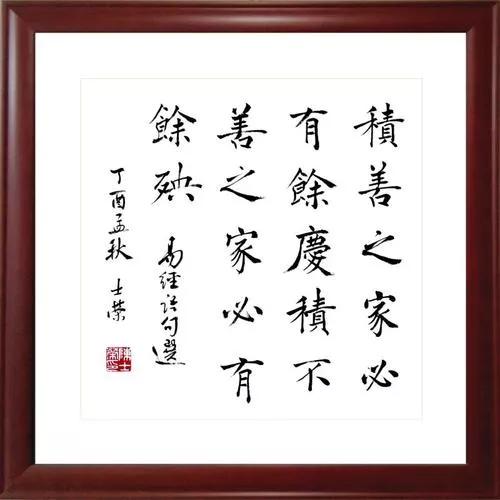 積善之家必
有餘慶積不
善之家必有
餘殃
易經語句選
丁酉孟秋 士榮
陳士榮印